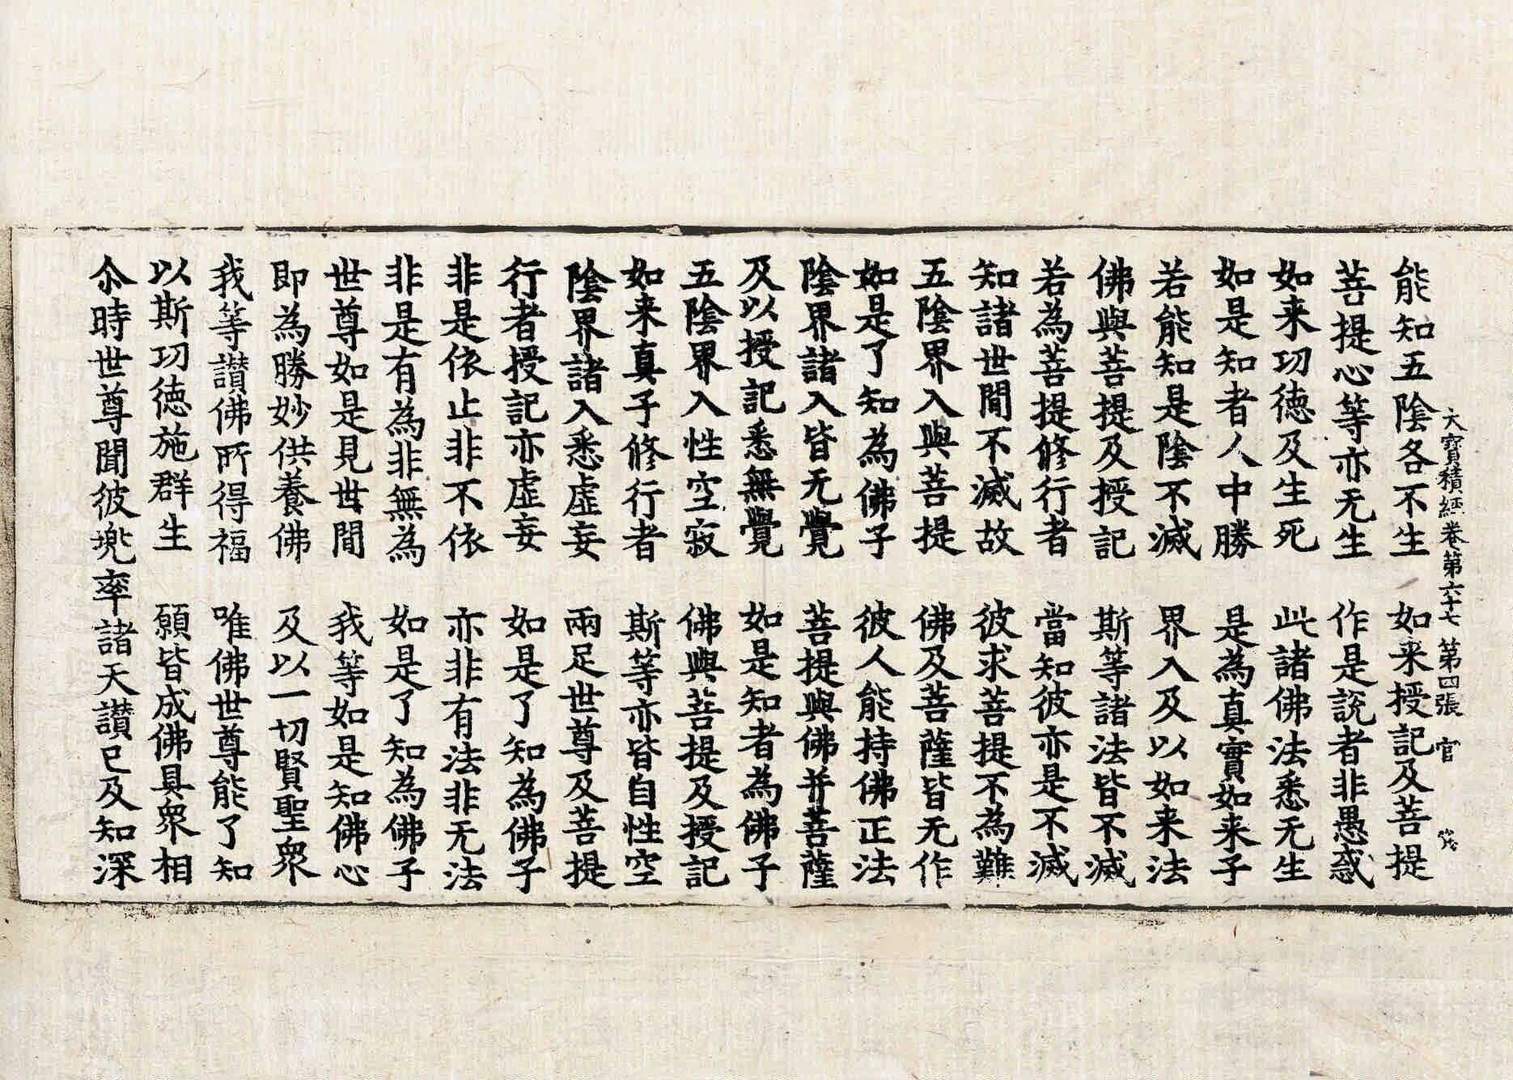 大寶積經卷第六十七 第四張 官
能知五陰各不生 如来授記及菩提
菩提心等亦无生 作是説者非愚惑
如来功徳及生死 此諸佛法悉无生
如是知者人中勝 是為真實如来子
若能知是陰不滅 界入及以如来法
佛與菩提及授記 斯等諸法皆不滅
若為菩提修行者 當知彼亦是不滅
知諸世間不滅故 彼求菩提不為難
五陰界入與菩提 佛及菩薩皆无作
如是了知為佛子 彼人能持佛正法
陰界諸入皆无覺 菩提與佛并菩薩
及以授記悉無覺 如是知者為佛子
五陰界入性空寂 佛與菩提及授記
如来真子修行者 斯等亦皆自性空
陰界諸入悉虛妄 兩足世尊及菩提
行者授記亦虛妄 如是了知為佛子
非是依止非不依 亦非有法非无法
非是有為非無為 如是了知為佛子
世尊如是見世間 我等如是知佛心
即為勝妙供養佛 及以一切賢聖衆
我等讃佛所得福 唯佛世尊能了知
以斯功徳施群生 願皆成佛具衆相
尒時世尊聞彼兠率諸天讃已及知深